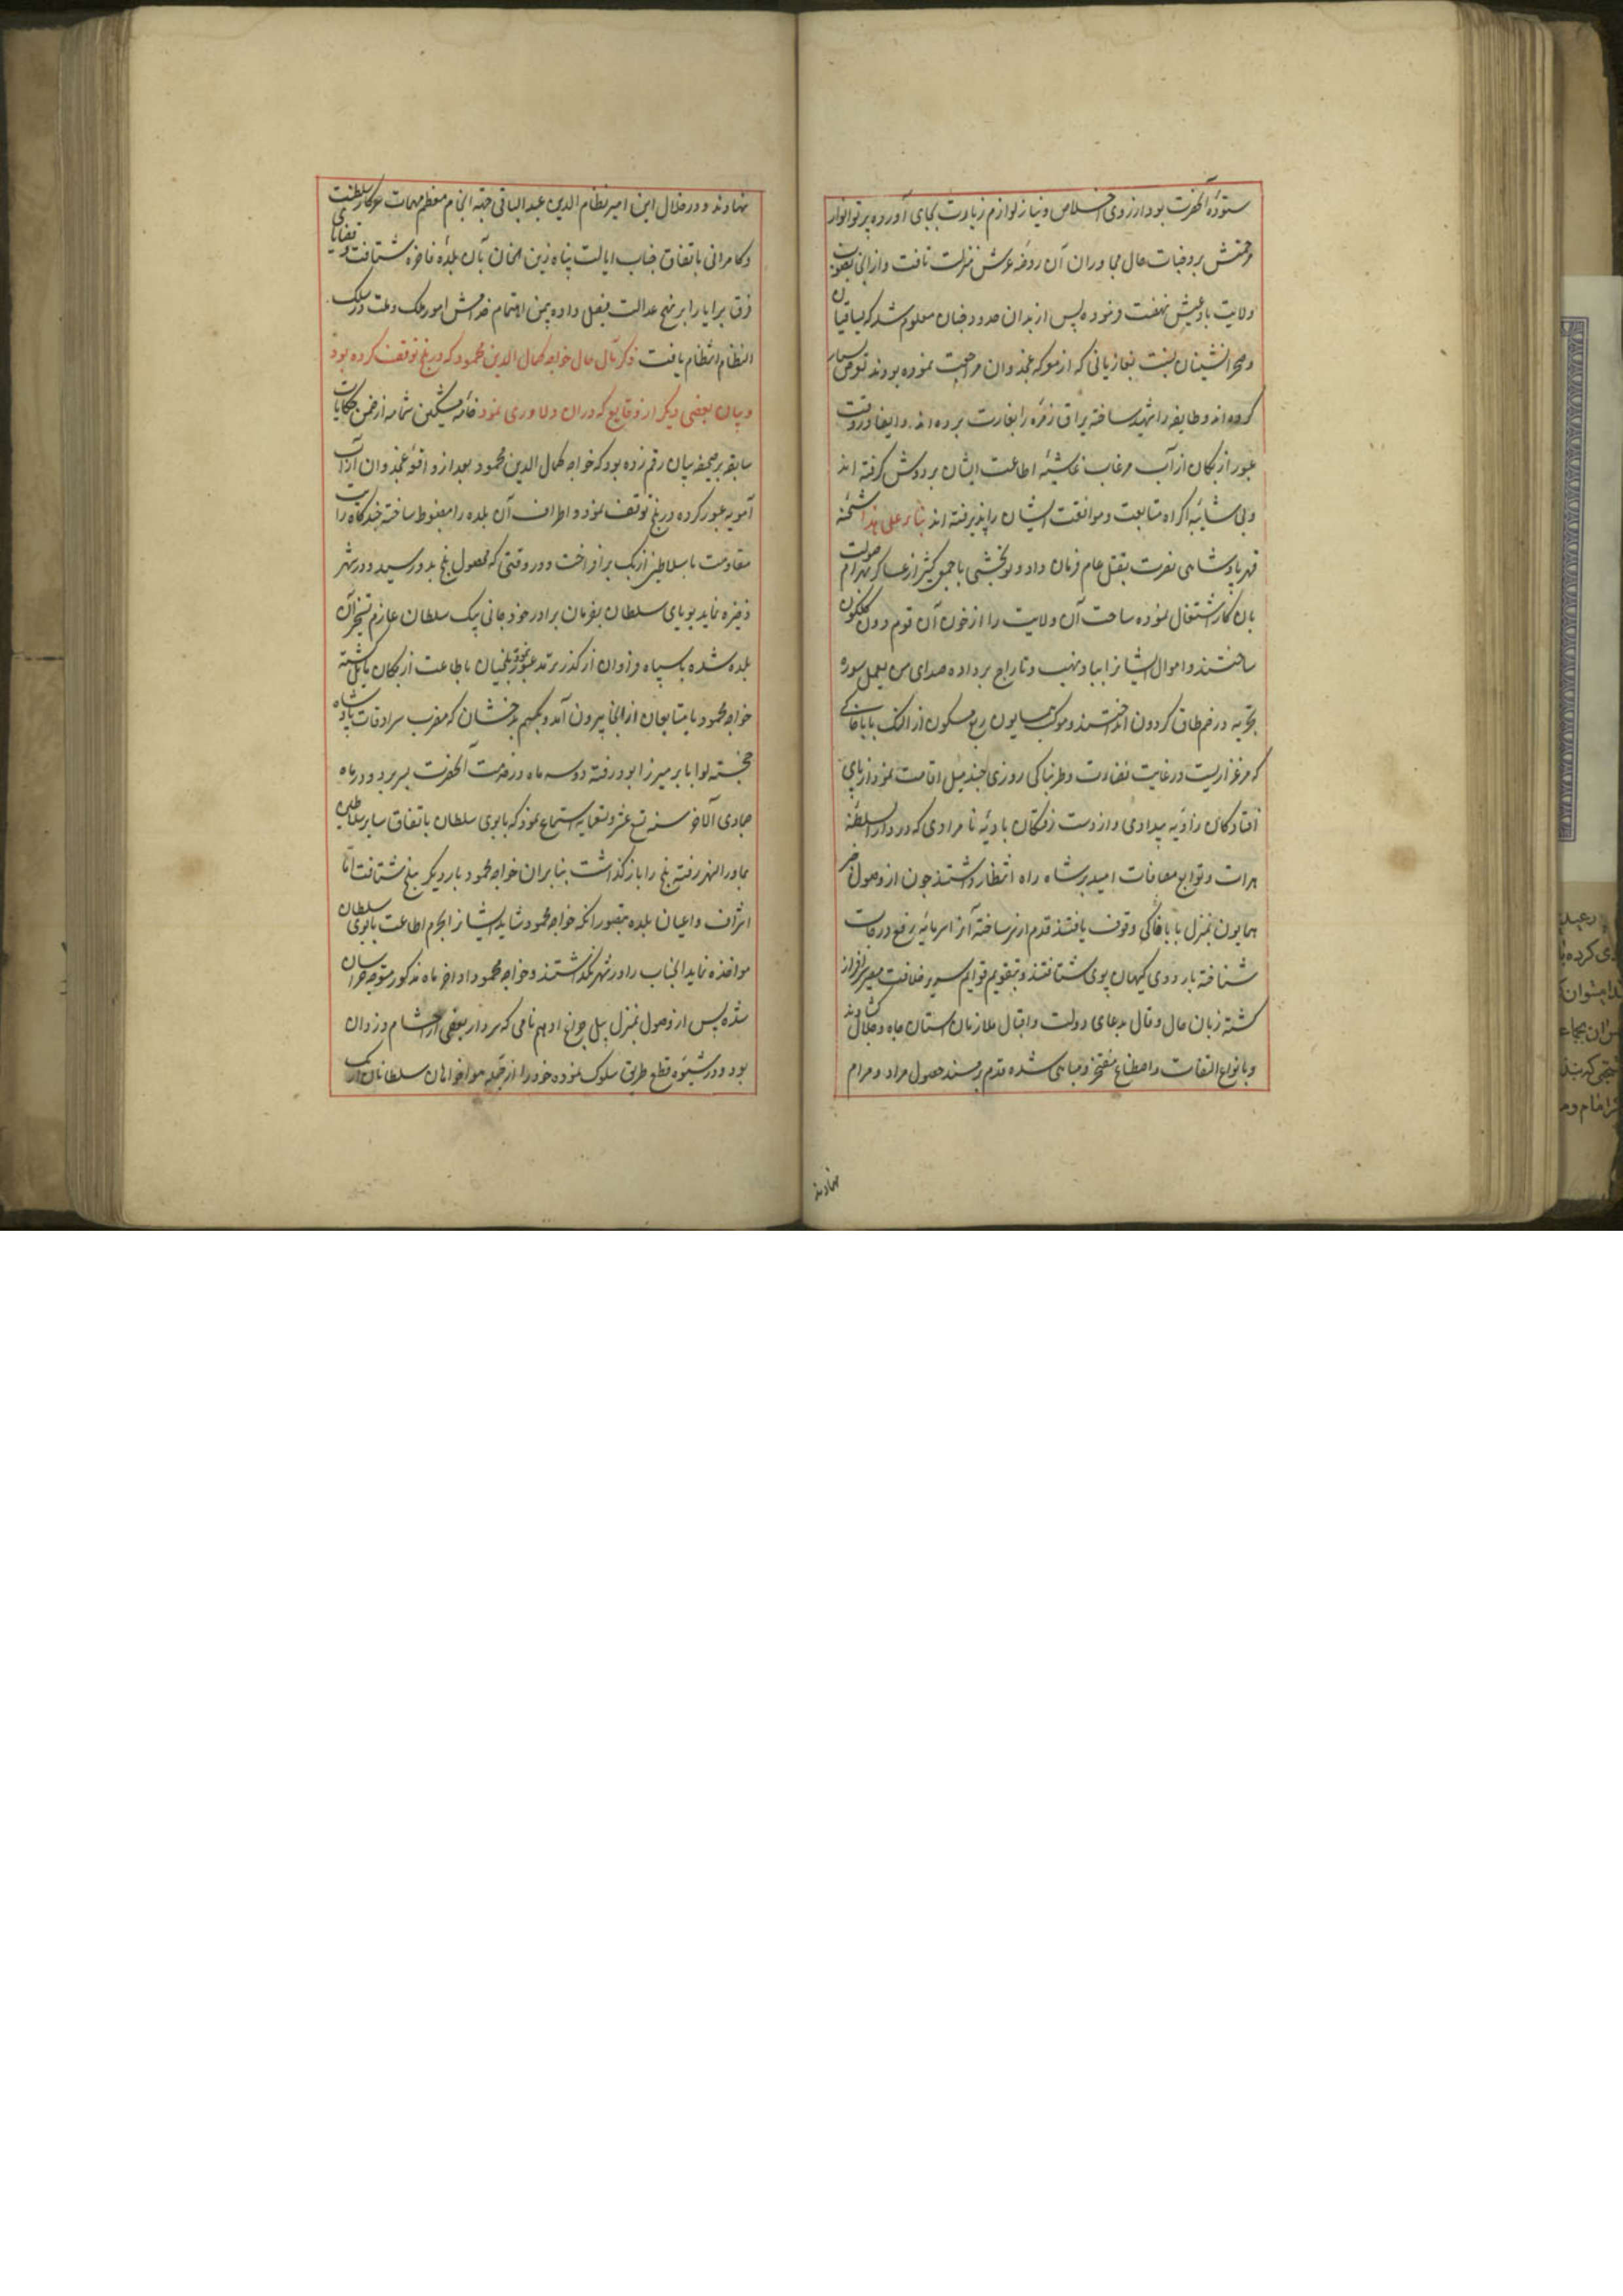 ستوده آنحضرت بود از روی اخلاص و نیاز لوازم زیارت بجای آورده پرتو انوار
مرحمتش بر وجنات حال مجاوران آن روضه عرش منزلت تافت و از آنجا بصوب
ولایت بادغیش نهضت فرموده پس از بدان حدود چنان معلوم شد که
و صحرانشینان نسبت بغازیانی که از معرکه غجدوان مراجعت نموده بودند تعرض بسیار
کرده اند و طایفه را شهید ساخته یراق زمره را بغارت برده اند و ایضا در وقت
عبور ازبکان از آب مرغاب غاشیه اطاعت ایشان بر دوش گرفته اند
و بی شائبه اکراه متابعت و موافقت ایشان را پذیرفته اند بناء علی هذا شحنه
قهر پادشاهی نفرت بقتل عام فرمان داد و بخشی با جمعی کثیر از عساکر بهرام صولت
بان کار اشتغال نموده ساحت آن ولایت را از خون آن قوم دون گلگون
ساختند و اموال ایشانرا بباد نهب و تاراج برداده صدای من یعمل سوء
یجز به در خم طاق گردون انداختند و موکب همایون ربع مسکون از النگ بابا خاکی
که مرغزاریست در غایت نضارت و طربناکی روزی چند میل اقامت نمود از پای
افتادگان زاویه بیدادی و از دست رفتگان بادیه نامرادی که در دار السلطنه
هرات و توابع مضافات امید بر شاه راه انتظار داشتند چون از وصول
همایون بمنزل بابا خاکی وقوف یافتند قدم از سر ساخته آنرا سرمایه رفع درجات
شناخته باردوی کیهان پوی شتافتند و بتقویم قوایم سریر خلافت مصیر سرافراز
گشته زبان حال و قال بدعای دولت و اقبال ملازمان آستان جاه و جلال گشادند
و بانواع التفات و اصطناع مفتخر و مباهی شده قدم بر مسند حصول مراد و مرام
نهادند
نهادند و در خلال این امیر نظام الدین عبد الباقی جهة انجام معظم مهمات سرکار سلطنت
و کامرانی باتفاق جناب ایالت پناه زین الخان بآن بلده فاخره شتافت و قضایای
فرق برایا را بر نهج عدالت بفصل داده بیمن اهتمام خدامش امور ملک و ملت در سلک
انتظام انتظام یافت ذکر مآل حال خواجه کمال الدین محمود که در بلخ توقف کرده بود
و بیان بعضی دیگر از وقایع که در آن دلاوری نمود خامه مشکین شمامه از ضمن حکایات
سابقه بر صحیفه بیان رقم زده بود که خواجه کمال الدین محمود بعد از واقعه غجدوان از آب
آمویه عبور کرده در بلخ توقف نمود و اطراف آن بلده را مضبوط ساخته چندگاه رایت
مقاومت با سلاطین ازبک برافراخت و در وقتی که محصول بلخ بدو رسید و در شهر
ذخیره نماید بویای سلطان بفرمان برادر خود جانی بیک سلطان عازم تسخیر آن
بلده شده با سپاه فراوان از گذر ترمد عبور نمود و بلخیان باطاعت ازبکان مایل گشته
خواجه محمود با متابعان از آنجا بیرون آمد و بجهیم بدخشان که مضرب سرادقات پادشاه
خجسته لوا بابر میرزا بود رفته دو سه ماه در خدمت آنحضرت بسر برد و در ماه
جمادی الآخر سنه تسع عشر و تسعمایه استماع نمود که بابوی سلطان باتفاق سایر سلاطین
بماوراء النهر رفته بلخ را باز گذاشت بنابران خواجه محمود بار دیگر ببلخ شتافت اما
اشراف و اعیان بلده بتصور آنکه خواجه محمود شاید ایشانرا بجرم اطاعت بابوی سلطان
مواخذه نماید آنجناب را در شهر نگذاشتند و خواجه محمود اواخر ماه مذکور متوجه خراسان
شده پس از وصول بمنزل پل چراغ ادهم نامی که سردار بعضی از احشام دزدان
بود و در شیوه قطع طریق سلوک نموده خود را از جمله هواخواهان سلطانان ازبک